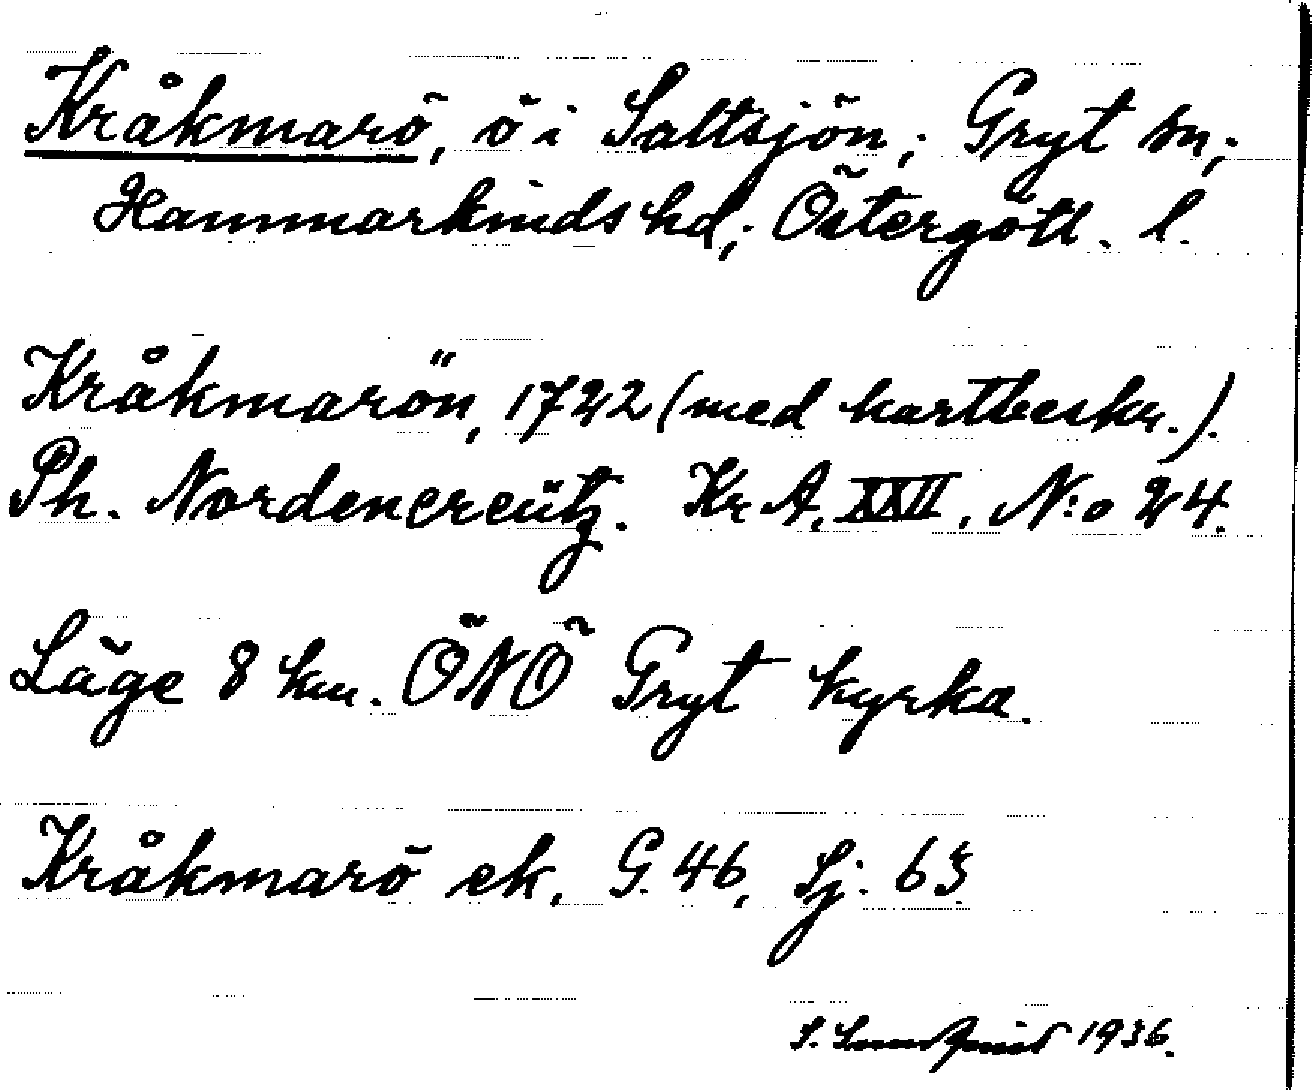 Kråkmarö, ö i Saltsjön; Gryt sn;
Hammarkinds hd; Östergötl. l.
Kråkmarön, 1722 (med kartbeskr.).
Ph. Nordencreütz. Kr A. XXII, N:o 24.
Läge 8 km. ÖNÖ Gryt kyrka.
Kråkmarö ek. G. 46, Sj. 63
S. Lundqvist 1936.